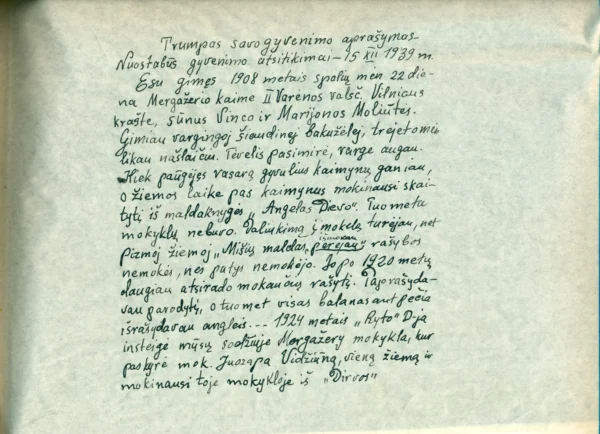 Trumpas savo gyvenimo aprašymas
Nuostabūs gyvenimo atsitikimai – 15 XII 1939 m.
Esu gimęs 1908 metais spalių mėn 22 die-
na Mergažerio kaime II Varėnos valsč. Vilniaus
krašte, sūnus Vinco ir Marijonos Moliūtės.
Gimiau vargingoj šiaudinėj bakužėlėj, trejetomis
likau našlaičiu. Tėvelis pasimirė, varge augau.
Kiek paūgėjęs vasarą gyvulius kaimynų ganiau,
o žiemos laike pas kaimynus mokinausi skai-
tyti iš maldaknygės „Angelas Dievo". Tuo metu
mokyklų nebuvo. Palinkimą į mokslą turėjau, net
pirmoj žiemoj „Mišių maldas,
išmokau
perėjau" rašybos
nemokės, nes patys nemokėjo. Jo po 1920 metų
daugiau atsirado mokančių rašyti. 
vau parodyti, o tuomet visas balanas ant pečia
išrašydavau angleis... 1924 metais „Ryto" D-ja
insteigė mūsų sodžiuje Mergažerų mokykla, kur
paskyrė mok. Juozapą Vidžiūną, vieną žiemą ir
mokinausi toje mokykloje iš „Dirvos"